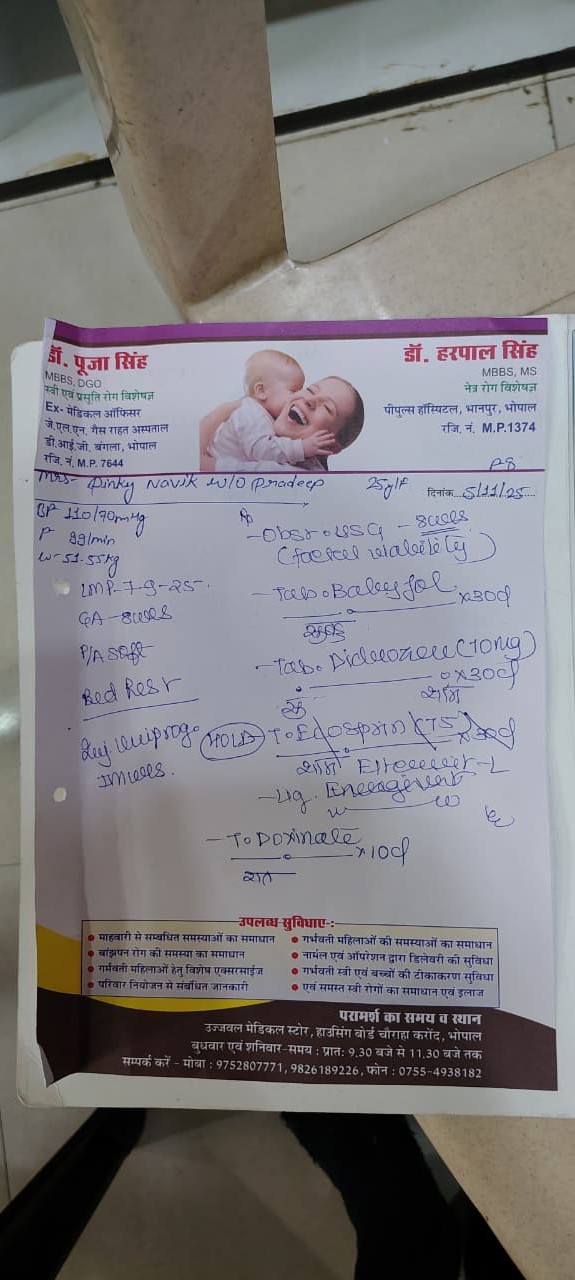 डॉ. पूजा सिंह
MBBS, DGO
स्त्री एवं प्रसूति रोग विशेषज्ञ
Ex- मेडिकल ऑफिसर
जे.एल.एन. गैस राहत अस्पताल
डी.आई.जी. बंगला, भोपाल
रजि. नं. M.P. 7644
डॉ. हरपाल सिंह
MBBS, MS
नेत्र रोग विशेषज्ञ
पीपुल्स हॉस्पिटल, भानपुर, भोपाल
रजि. नं. M.P.1374
Mrs- Pinky Navik w/o Pradeep 25y/F
दिनांक 5/11/25
BP 110/70
P 99/min
W-51.55kg
LMP-7-9-25
GA-8
P/A Soft
Bed Rest
Inj
- Obst. USG - 8
- Tab. x30d
सुबह
- Tab. (10mg)
x30d
शाम
HOLD T. (75) x30d
शाम
- T. Doxinate x10d
रात
उपलब्ध सुविधाए :-
माहवारी से सम्बधित समस्याओं का समाधान
बांझपन रोग की समस्या का समाधान
गर्भवती महिलाओं हेतु विशेष एक्सरसाईज
परिवार नियोजन से संबंधित जानकारी
गर्भवती महिलाओं की समस्याओं का समाधान
नार्मल एवं ऑपरेशन द्वारा डिलेवरी की सुविधा
गर्भवती स्त्री एवं बच्चों की टीकाकरण सुविधा
एवं समस्त स्त्री रोगों का समाधान एवं इलाज
परामर्श का समय व स्थान
उज्जवल मेडिकल स्टोर, हाउसिंग बोर्ड चौराहा करोंद, भोपाल
बुधवार एवं शनिवार-समय : प्रात: 9.30 बजे से 11.30 बजे तक
सम्पर्क करें - मोबा : 9752807771, 9826189226, फोन : 0755-4938182